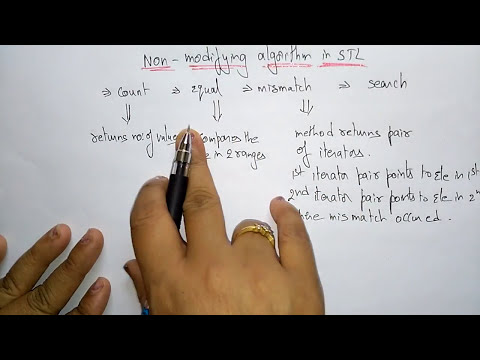 Non-modifying algorithm in STL
⇒ count ⇒ equal ⇒ mismatch ⇒ search
returns no: of value
compares the
in 2 ranges
method returns pair
of iterators.
1st iterator pair points to Ele in 1st
2nd iterator pair points to Ele in 2
mismatch occured.